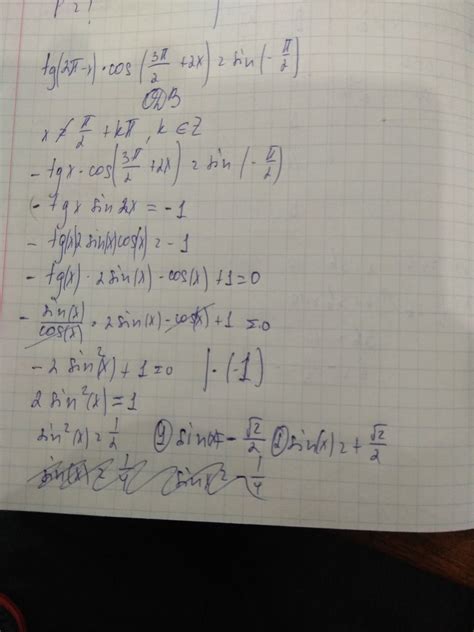 tg(2π-x)·cos(3π/2 + 2x) = sin(-π/2)
ОДЗ
x ≠ π/2 + kπ, k ∈ Z
-tgx·cos(3π/2 + 2x) = sin(-π/2)
- tgx sin2x = -1
- tg(x)2sin(x)cos(x) = -1
- tg(x)·2sin(x)-cos(x)+1=0
- sin(x)/cos(x) · 2sin(x)-cos(x)+1=0
-2sin²(x)+1=0 |·(-1)
2sin²(x)=1
sin²(x)=1/2 ① sin(x)=-√2/2 ② sin(x)=+√2/2
sin(x)=1/4 sinx=-1/4